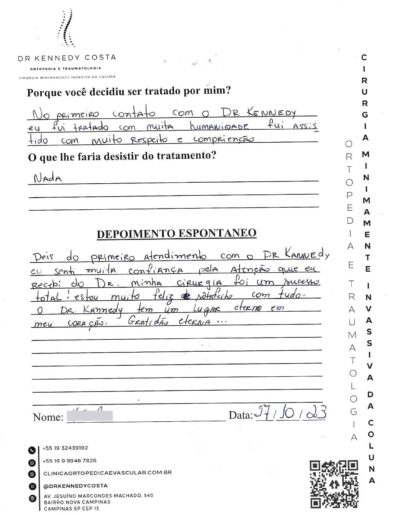 DR KENNEDY COSTA
ORTOPEDIA E TRAUMATOLOGIA
CIRURGIA MINIMAMENTE INVASIVA DA COLUNA
Porque você decidiu ser tratado por mim?
No primeiro contato com o DR KENNEDY
eu fui tratado com muita humanidade fui assis
tido com muito respeito e comprienção
O que lhe faria desistir do tratamento?
NADA
DEPOIMENTO ESPONTANEO
Deis do primeiro atendimento com o DR KANNEDY
eu senti muita confiança pela atenção que eu
recebi do DR. minha cirurgia foi um sucesso
total! estou muito feliz satisfeito com tudo.
O DR. Kannedy tem um lugar eterno em
meu coração. Gratidão eterna...
Nome:
Data: 27/10/23
+55 19 32439192
+55 19 9 9946 7826
CLINICAORTOPEDICAEVASCULAR.COM.BR
@DRKENNEDYCOSTA
AV. JESUÍNO MARCONDES MACHADO, 540
BAIRRO NOVA CAMPINAS
CAMPINAS SP CEP 13
ORTOPEDIA E TRAUMATOLOGIA
CIRURGIA MINIMAMENTE INVASSIVA DA COLUNA